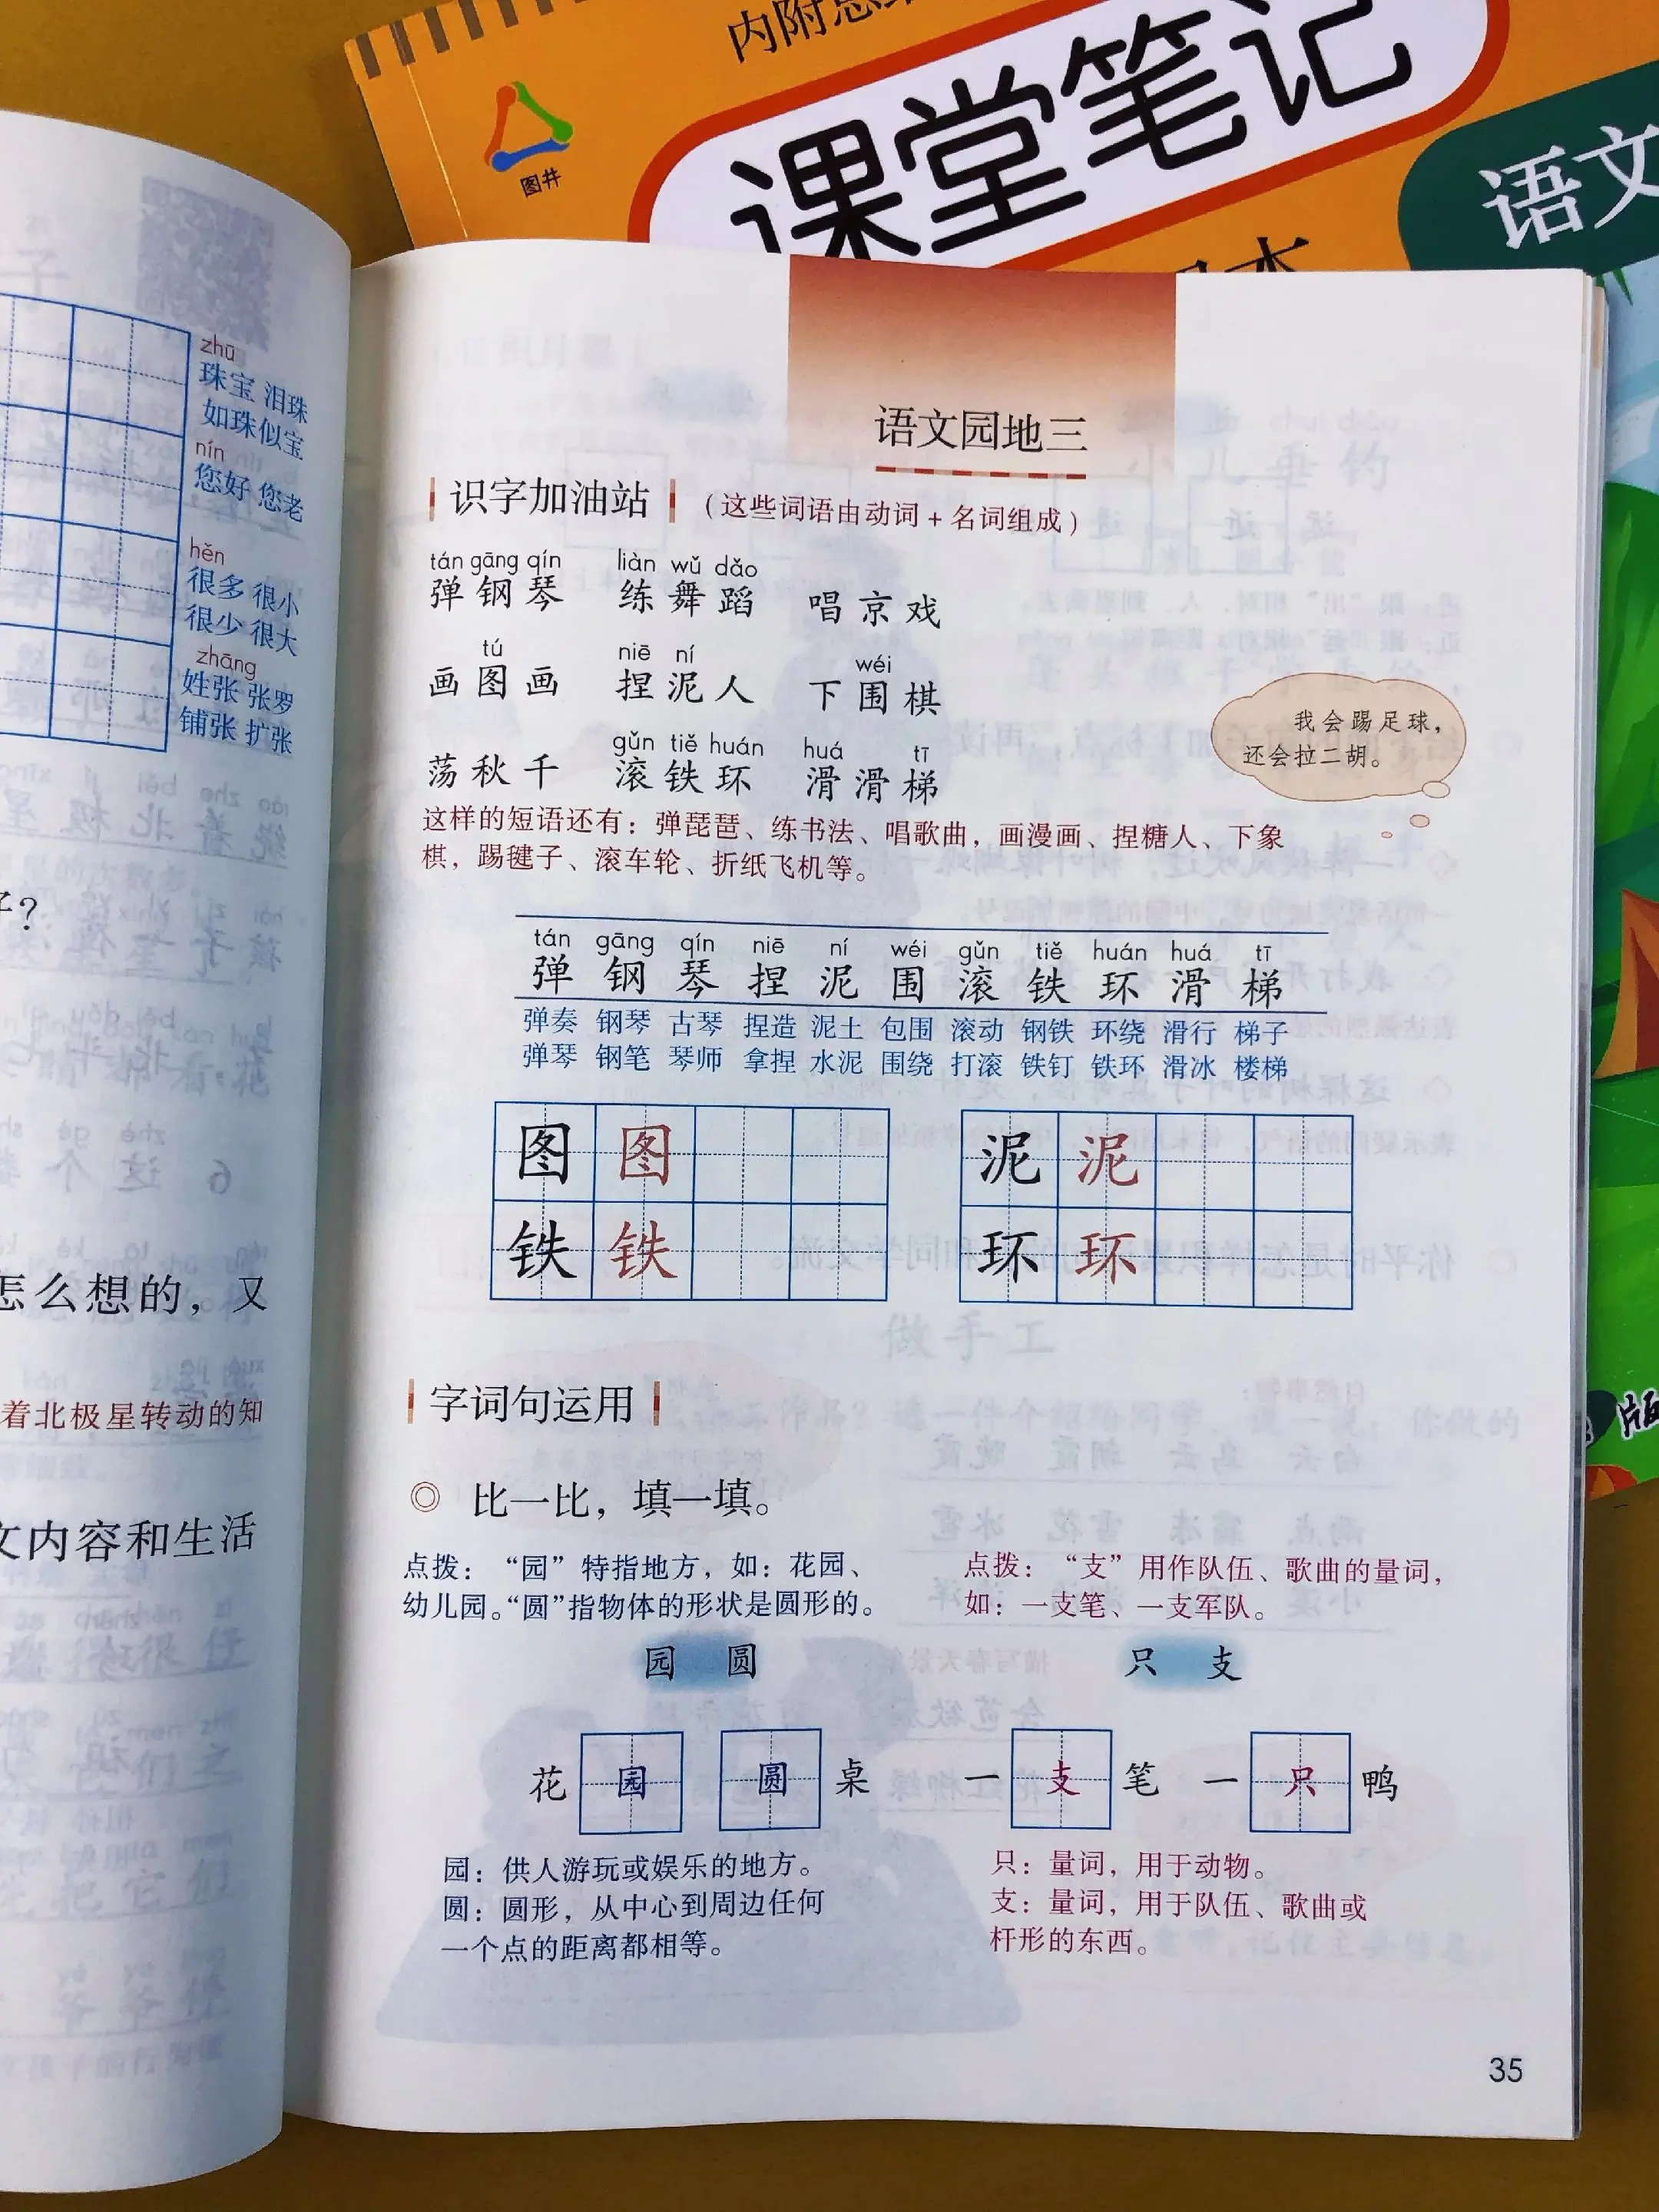 课堂笔记
语文
图井
zhū
珠宝 泪珠
如珠似宝
nín
您好 您老
hěn
很多 很小
很少 很大
zhāng
姓张 张罗
铺张 扩张
怎么想的，又
着北极星转动的知
文内容和生活
语文园地三
识字加油站 （这些词语由动词+名词组成）
tán gāng qín liàn wǔ dǎo
弹钢琴 练舞蹈 唱京戏
tú niē ní wéi
画图画 捏泥人 下围棋
gǔn tiě huán huá tī
荡秋千 滚铁环 滑滑梯
我会踢足球，
还会拉二胡。
这样的短语还有：弹琵琶、练书法、唱歌曲，画漫画、捏糖人、下象
棋，踢毽子、滚车轮、折纸飞机等。
tán gāng qín niē ní wéi gǔn tiě huán huá tī
弹 钢 琴 捏 泥 围 滚 铁 环 滑 梯
弹奏 钢琴 古琴 捏造 泥土 包围 滚动 钢铁 环绕 滑行 梯子
弹琴 钢笔 琴师 拿捏 水泥 围绕 打滚 铁钉 铁环 滑冰 楼梯
图 图 泥 泥
铁 铁 环 环
字词句运用
◎ 比一比，填一填。
点拨：“园”特指地方，如：花园、
幼儿园。“圆”指物体的形状是圆形的。
点拨：“支”用作队伍、歌曲的量词，
如：一支笔、一支军队。
园 圆 只 支
花 园 圆 桌 一 支 笔 一 只 鸭
园：供人游玩或娱乐的地方。
圆：圆形，从中心到周边任何
一个点的距离都相等。
只：量词，用于动物。
支：量词，用于队伍、歌曲或
杆形的东西。
35